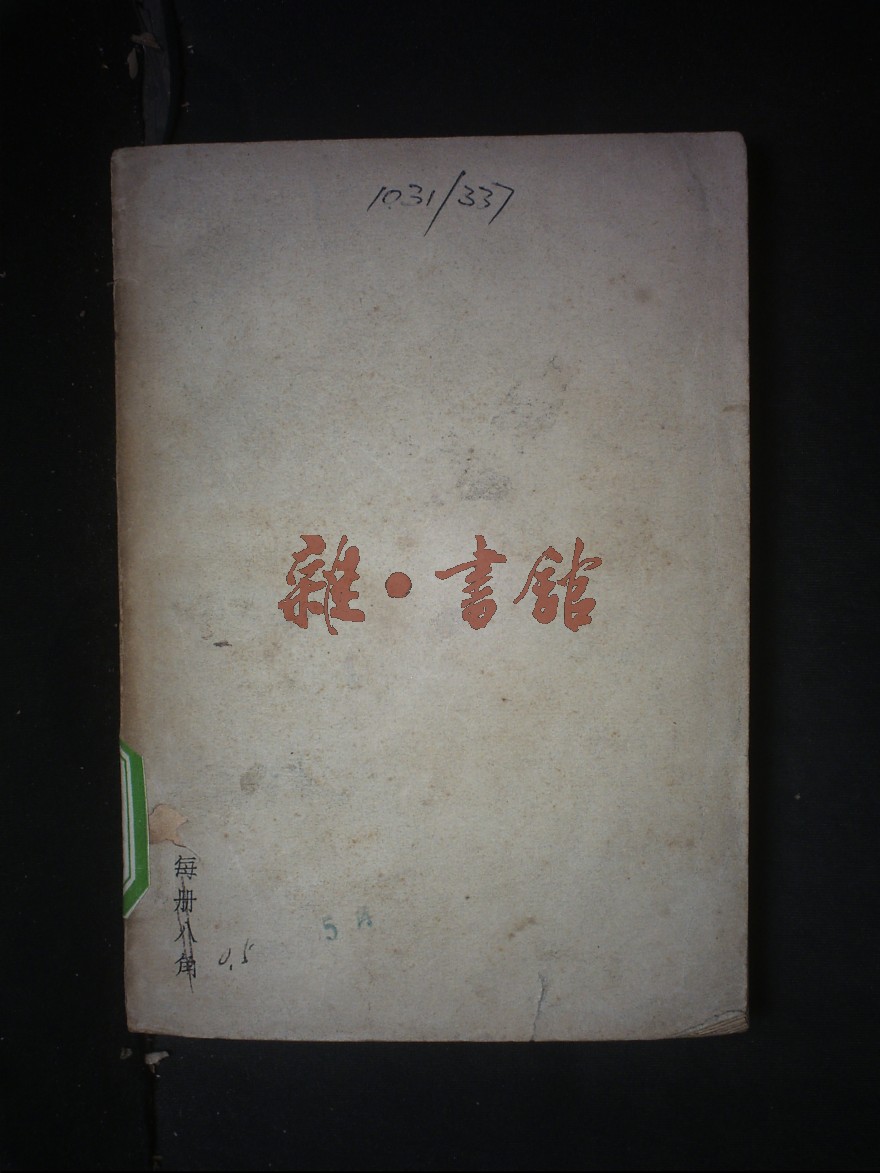 1031/337
雜·書館
每册八角
0.5
5